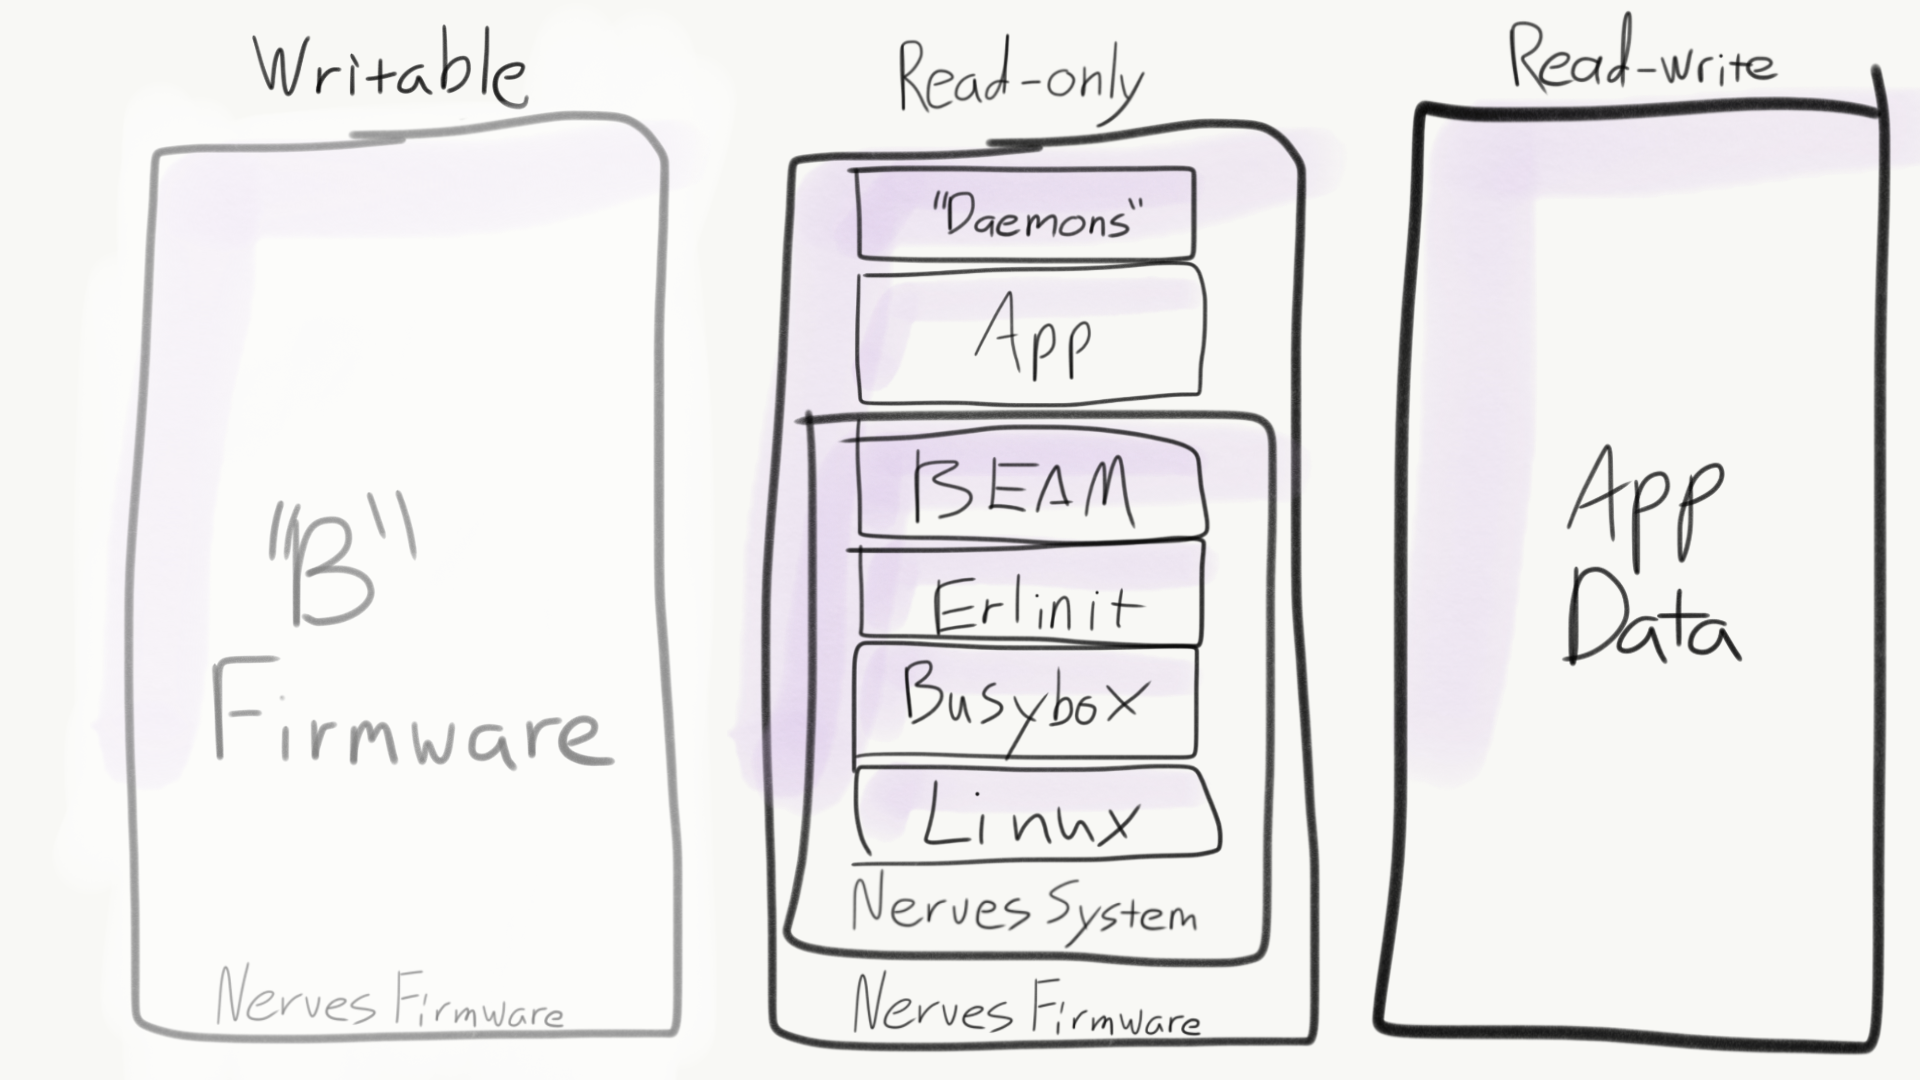 Writable
"B"
Firmware
Nerves Firmware
Read-only
"Daemons"
App
BEAM
Erlinit
Busybox
Linux
Nerves System
Nerves Firmware
Read-write
App
Data